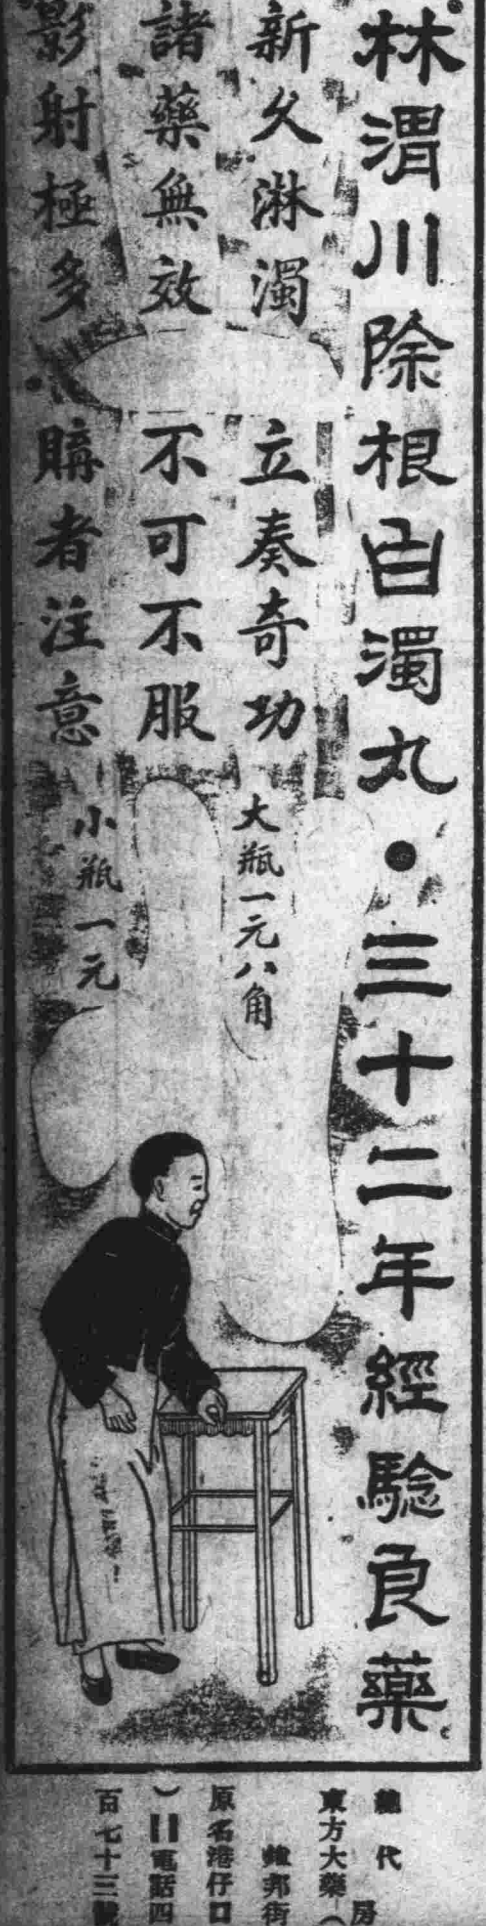 林渭川除根白濁丸•三十二年經驗良藥
新久淋濁 立奏奇功
大瓶一元八角
諸藥無效 不可不服
影射極多 購者注意
小瓶一元
總代
東方大藥房（
邦街
原名港仔口
）電話四
百七十三號